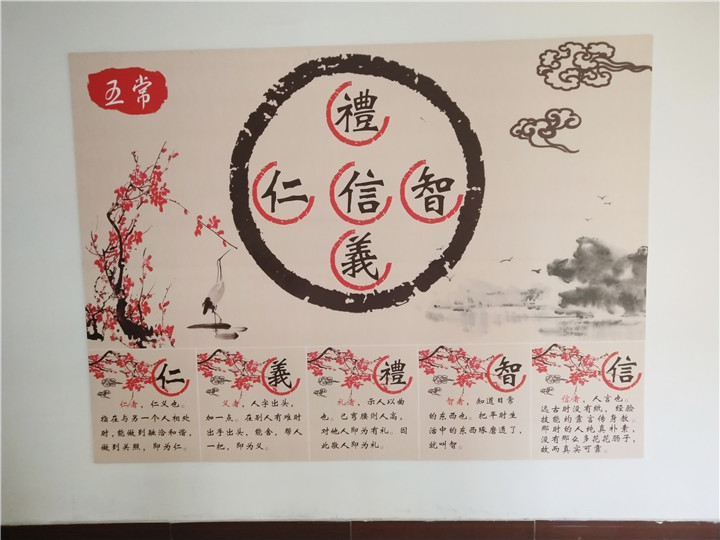 五常
禮
仁 信 智
義
仁
仁者，仁义也。
指在与另一个人相处
时，能做到融洽和谐，
做到关照，即为仁。
義
义者，人字出头，
加一点。在别人有难时
出手出头，能舍，帮人
一把，即为义。
禮
礼者，示人以曲
也。己弯腰则人高，
对他人即为有礼。因
此敬人即为礼。
智
智者，知道日常
的东西也。把平时生
活中的东西琢磨透了，
就叫智。
信
信者，人言也。
远古时没有纸，经验
技能均靠言传身教。
那时的人纯真朴素，
没有那么多花花肠子，
故而真实可靠。